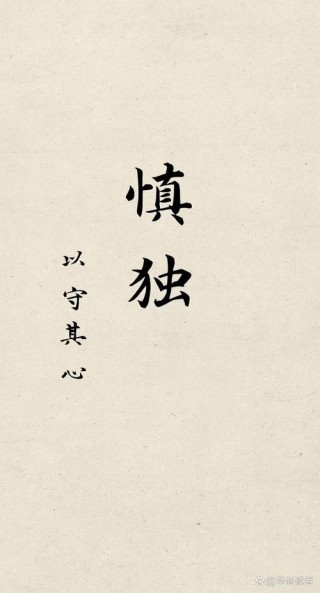 慎独
以守其心